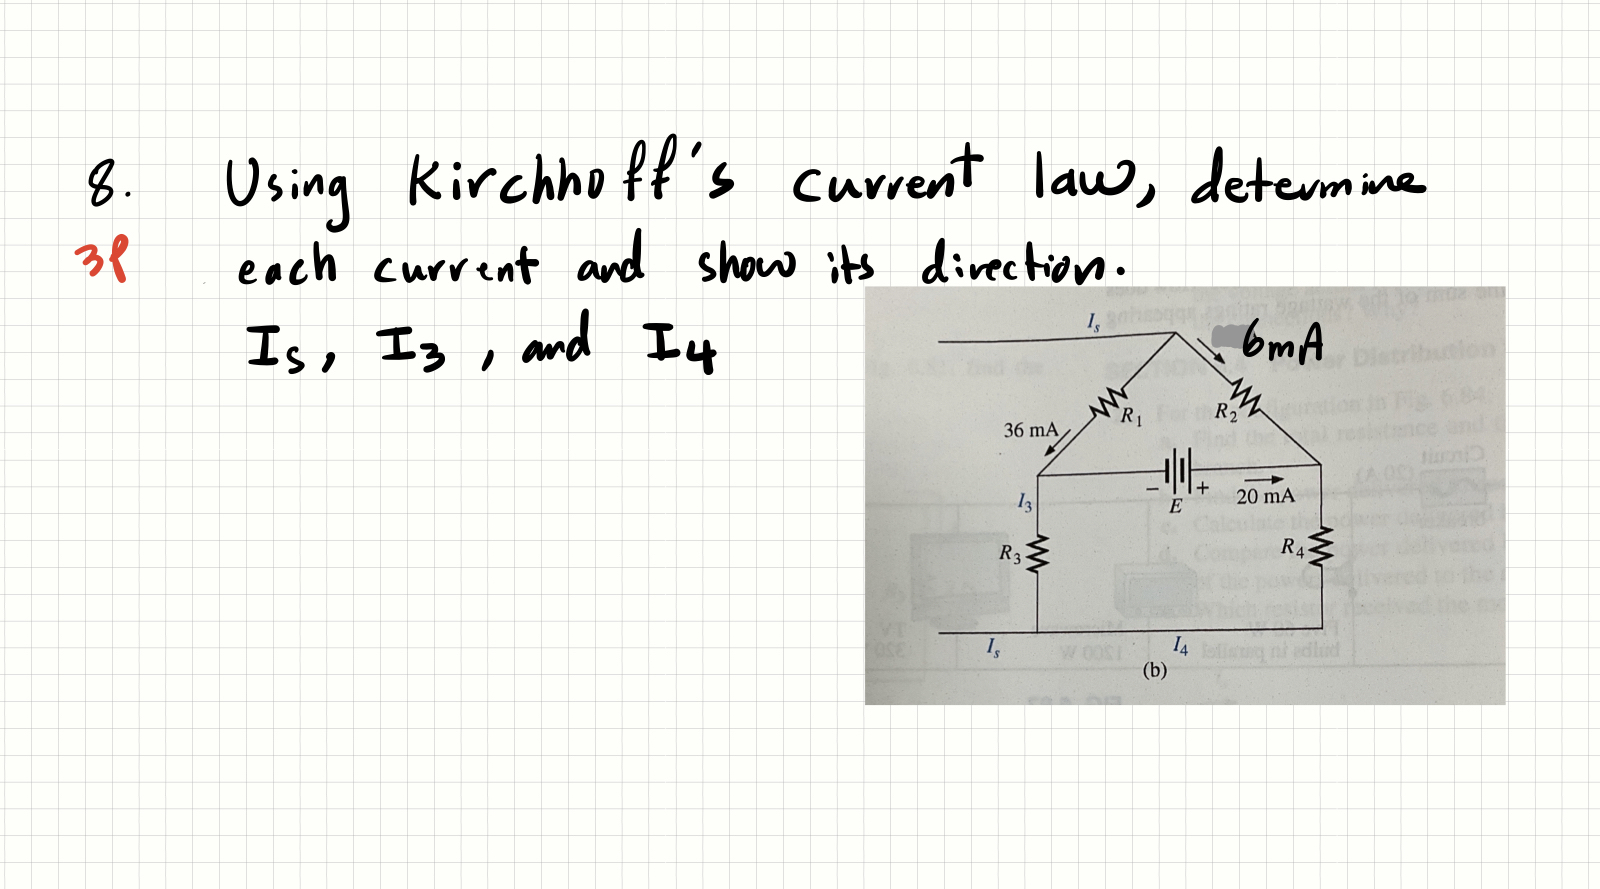 8. Using Kirchhoff's current law, determine
3P each current and show its direction.
Is, I3, and I4
Is
6mA
R1
R2
36 mA
I3
E
20 mA
R3
R4
Is
I4
(b)